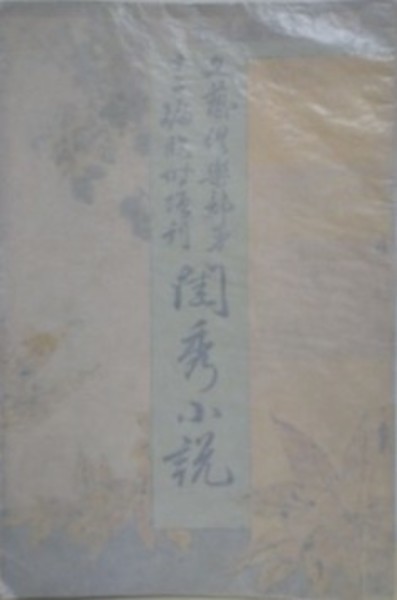 文藝倶樂部第
十二編臨時増刊
閨秀小説